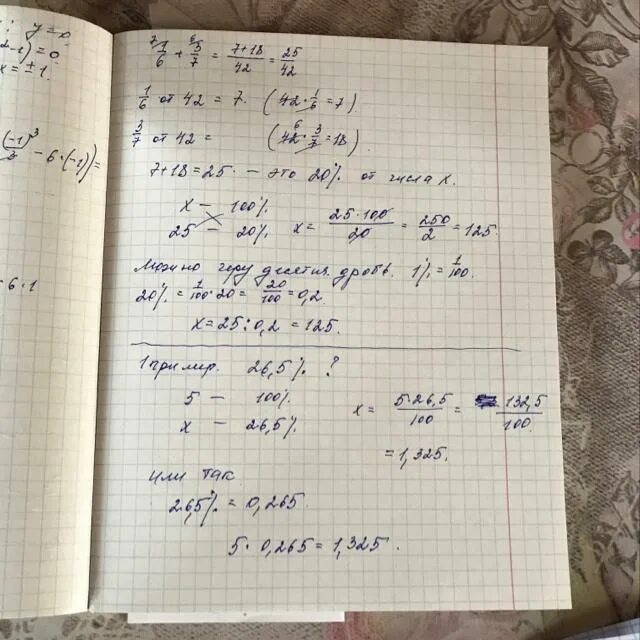 y = 0
-1) = 0
x = ±1
(-1)³/3 - 6·(-1)) =
6·1
1/6 + 3/7 = (7+18)/42 = 25/42
1/6 от 42 = 7. (42·1/6 = 7)
3/7 от 42 = (42·3/7 = 18)
7+18 = 25 - это 20% от числа x.
x - 100%
25 - 20% x = 25·100/20 = 250/2 = 125.
Можно через десятич. дробь. 1% = 1/100.
20% = 1/100·20 = 20/100 = 0,2
x = 25 : 0,2 = 125.
1 пример. 26,5% ?
5 - 100%
x - 26,5% x = 5·26,5/100 = 132,5/100
= 1,325.
или так
26,5% = 0,265
5 · 0,265 = 1,325.